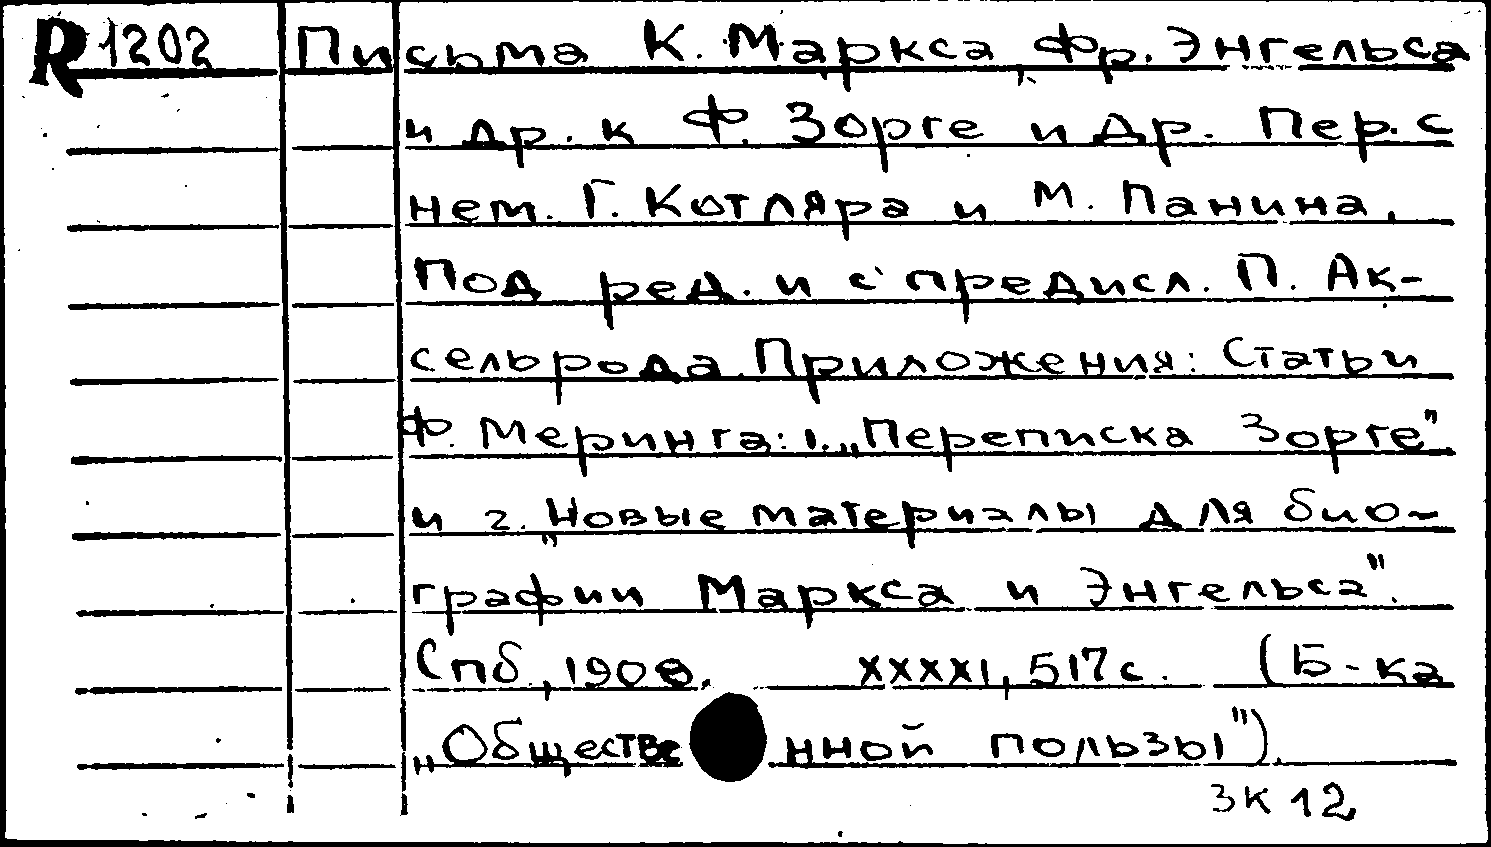 R 1202 Письма К. Маркса, Фр. Энгельса
и др. к Ф. Зорге и др. Пер. с
нем. Г. Котляра и М. Панина.
Под ред. и с предисл. П. Ак-
сельрода. Приложения: Статьи
Ф. Меринга: 1. „Переписка Зорге"
и 2. „Новые материалы для био-
графии Маркса и Энгельса".
Спб, 1908. XXXXI, 517 с. (Б-ка
„Обществе нной пользы").
3К 12